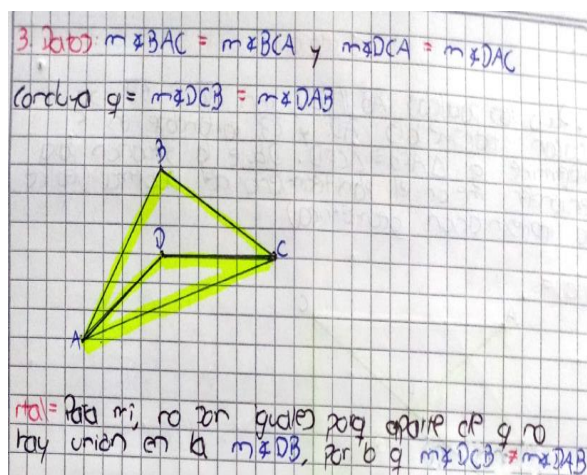 3. Datos: m∡BAC = m∡BCA y m∡DCA = m∡DAC
Concluya q= m∡DCB = m∡DAB
B
D
C
A
rta= Para mi, no son iguales porq aparte de q no
hay unión en la m∡DB, por lo q m∡DCB ≠ m∡DAB